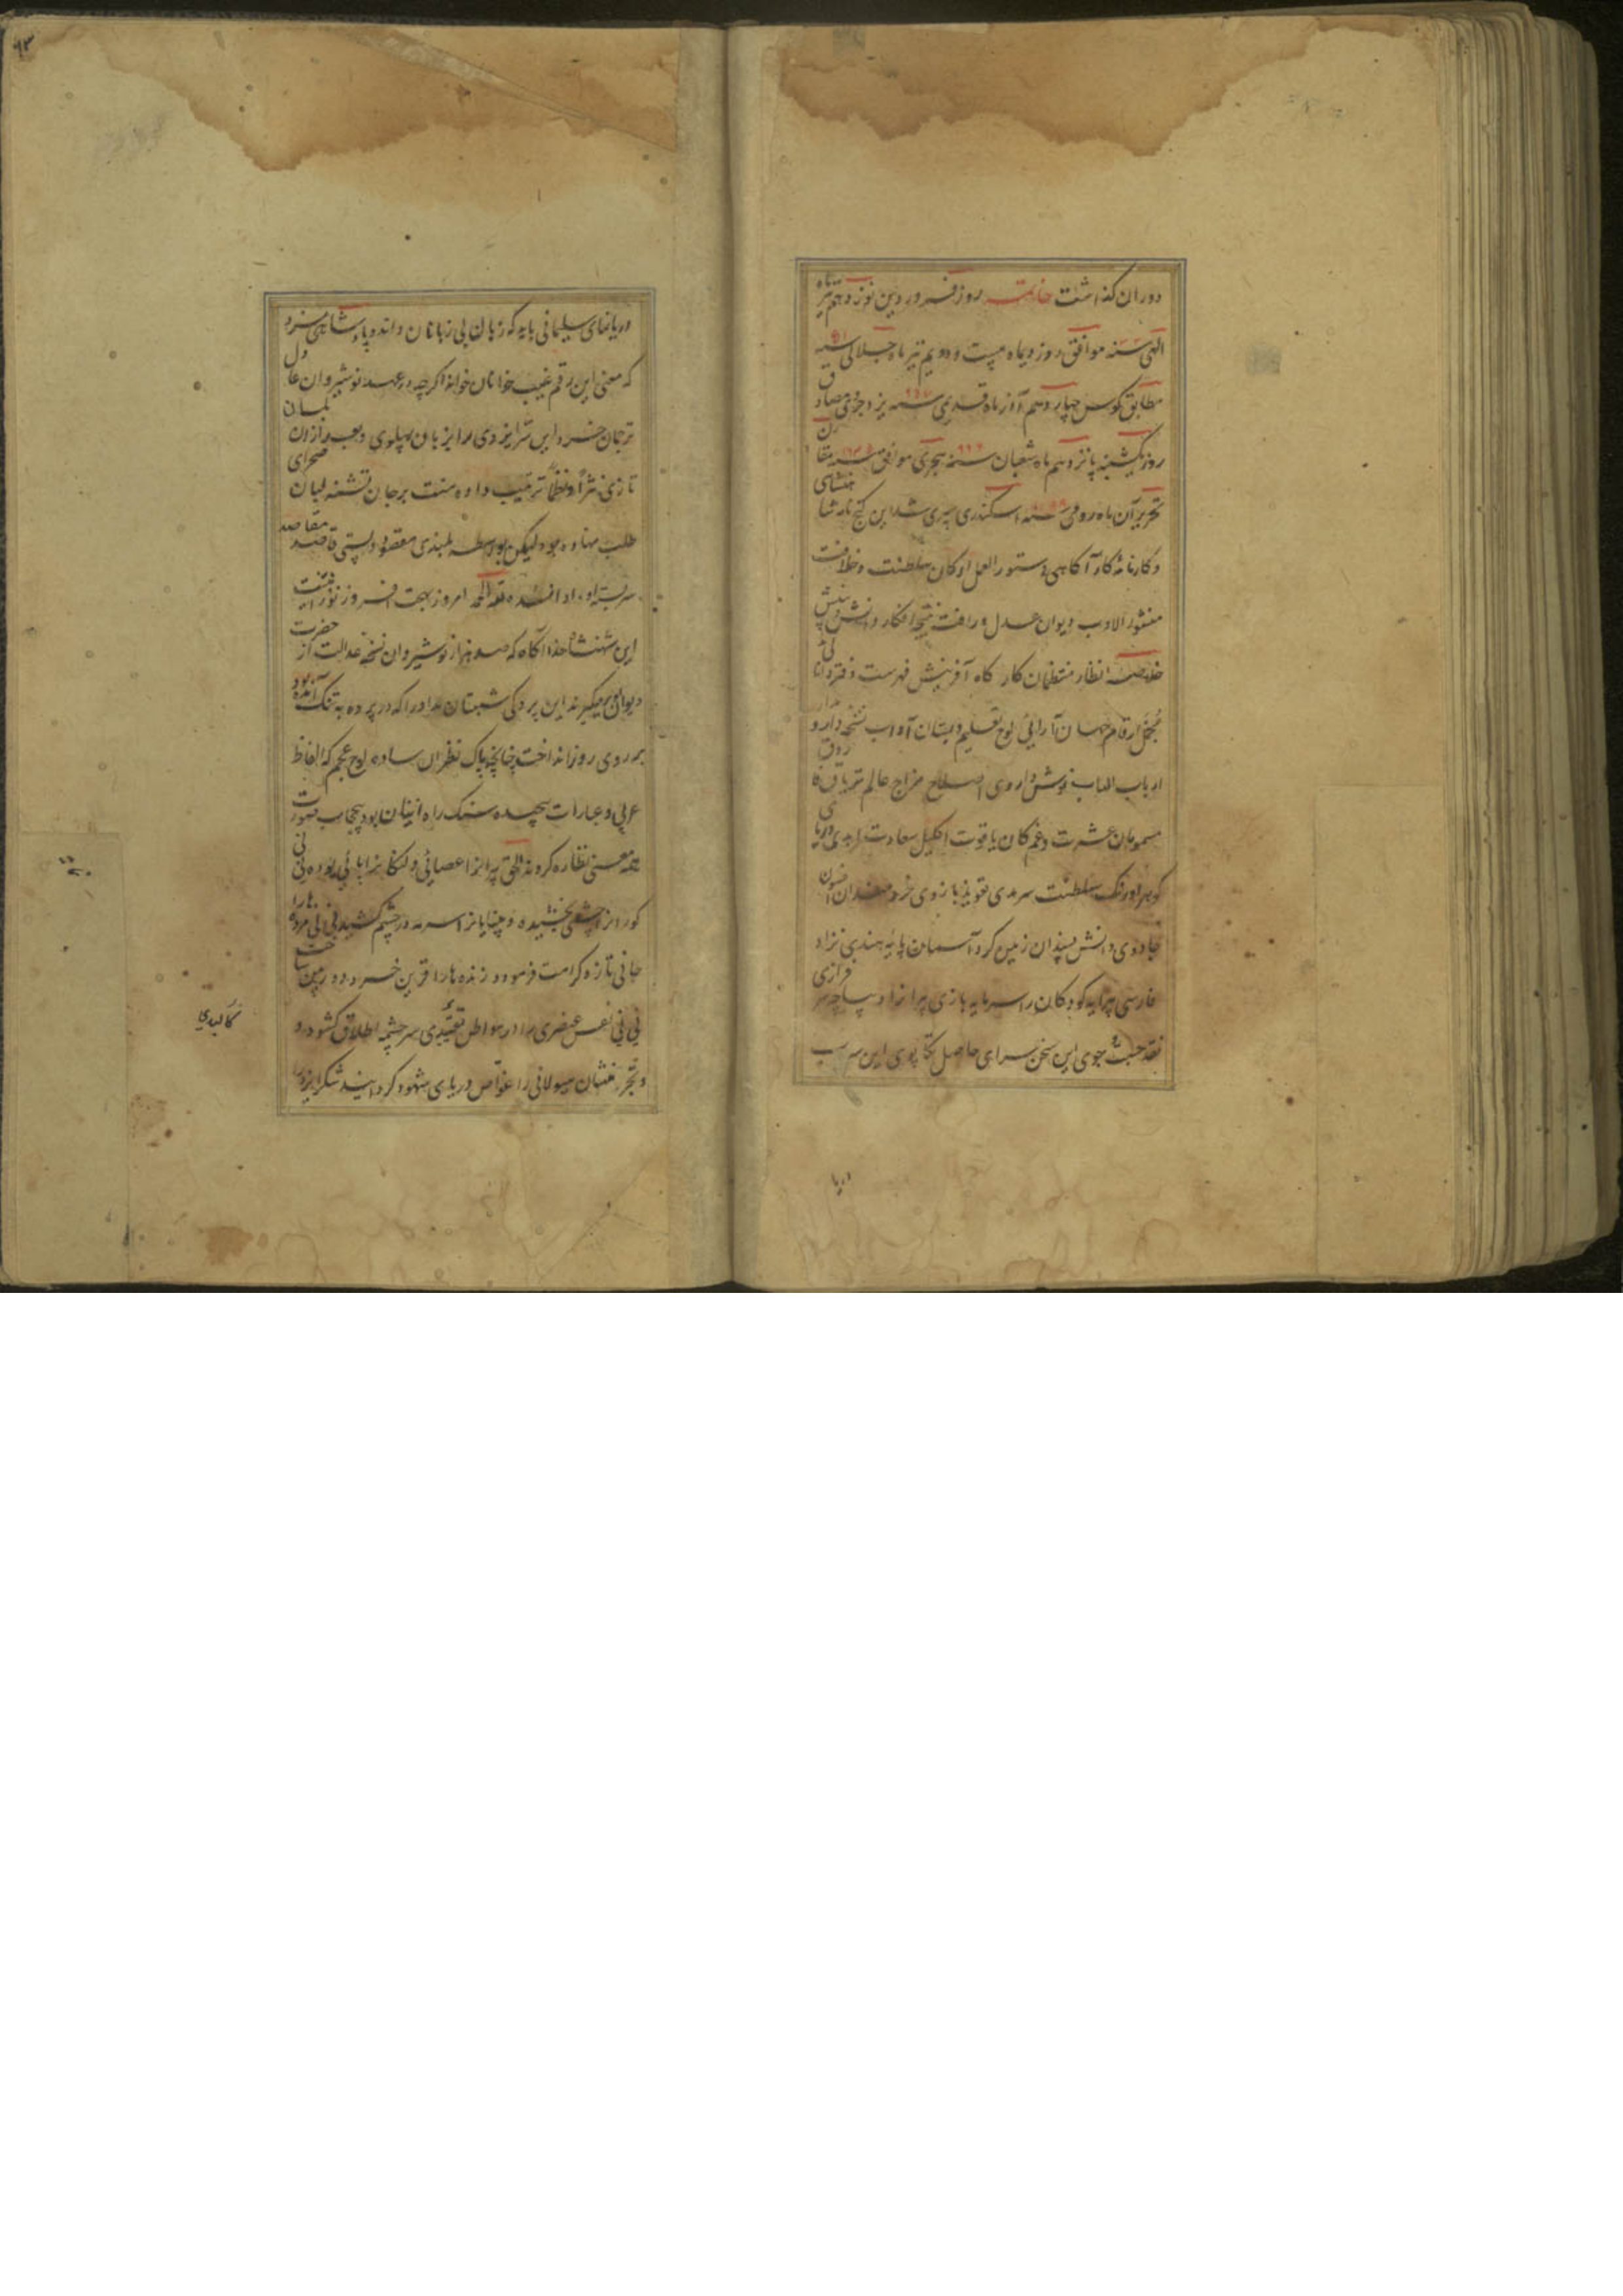 دوران گذاشت خاتمه روز فروردین نوزدهم تیرماه
الهی سنه موافق روز دیماه بیست و دویم تیر ماه جلالی سنه
مطابق گوس چهاردهم آذر ماه قدیمی سنه ۹۵۷ یزدجردی مصادق
روز یکشنبه پانزدهم ماه شعبان سنه ۹۹۶ هجری موافق سنه مقارن
تحریر آن ماه رومی سنه اسکندری سپری شد این گنج نامه شاهنشاهی
و کارنامه کار آگاهی دستور العمل ارکان سلطنت و خلافت
منشور الادب دیوان عدل و رافت نتیجه افکار دانش و بینش
خلاصه انظار منتظمان کارگاه آفرینش فهرست دفتر دانائی
مجمل ارقام جهان آرائی لوح تعلیم دبستان آداب نسخه دار و مدار
ارباب الباب نوش داروی اصلاح مزاج عالم تریاق فاروق
مسمومان عشرت و غم کان یاقوت اکلیل سعادت ابدی دریای
گوهر اورنگ سلطنت سرمدی تعویذ بازوی خردمندان افسون
جادوی دانش پسندان زمین گرد آسمان پایه هندی نژاد
فارسی پیرایه کودکان را سرمایه بازی پیرانرا دیباچه سرفرازی
نقد جست و جوی این سخن سرای حاصل تکاپوی این سر بسر
دریا
۹۳
دریاهای سلیمانی باید که زبان بی زبانان داند و پادشاهی سزد
که معنی این رقم غیب خوانان خواند اگرچه در عهد نوشیروان عادل
ترجمان خسرو این سر ایزدی را بزبان پهلوی و بعد ازان
تازی نثراً و نظماً ترتیب داده منت بر جان تشنه لبان صحرای
طلب نهاده بود لیکن بواسطه بلندی مقصود و پستی قاصد مقاصد
سر بسته او ادا نشده لله الحمد امروز بهجت افروز نوز
این شهنشاه خدا آگاه که صد هزار نوشیروان نسخه عدالت از حضرت
دیوان برمیگیرند این پردگی شبستان مداورا که در پرده به تنگ آمده بود
بر روی روز انداخت چنانچه پاک نظران ساده لوح عجم که الفاظ
عربی و عبارات پیچیده سنگ راه ایشان بود بیحجاب صورت
همه معنی نظاره کردند الحق پیرانرا عصائی و لنگانرا پائی بوده نی نی
کورانرا چشمی بخشیده و بینایانرا سرمه در چشم کشیده نی نی مرده هارا
جانی تازه کرامت فرموده و زنده هارا قرین خرد دوربین ساخت
نی نی نفس عنصری را در بواطن تقیدی سر چشمه اطلاق گشود و
و تجرد منشان هیولانی را غواص دریای شهود گردانید شکر ایزد را
کالبدی